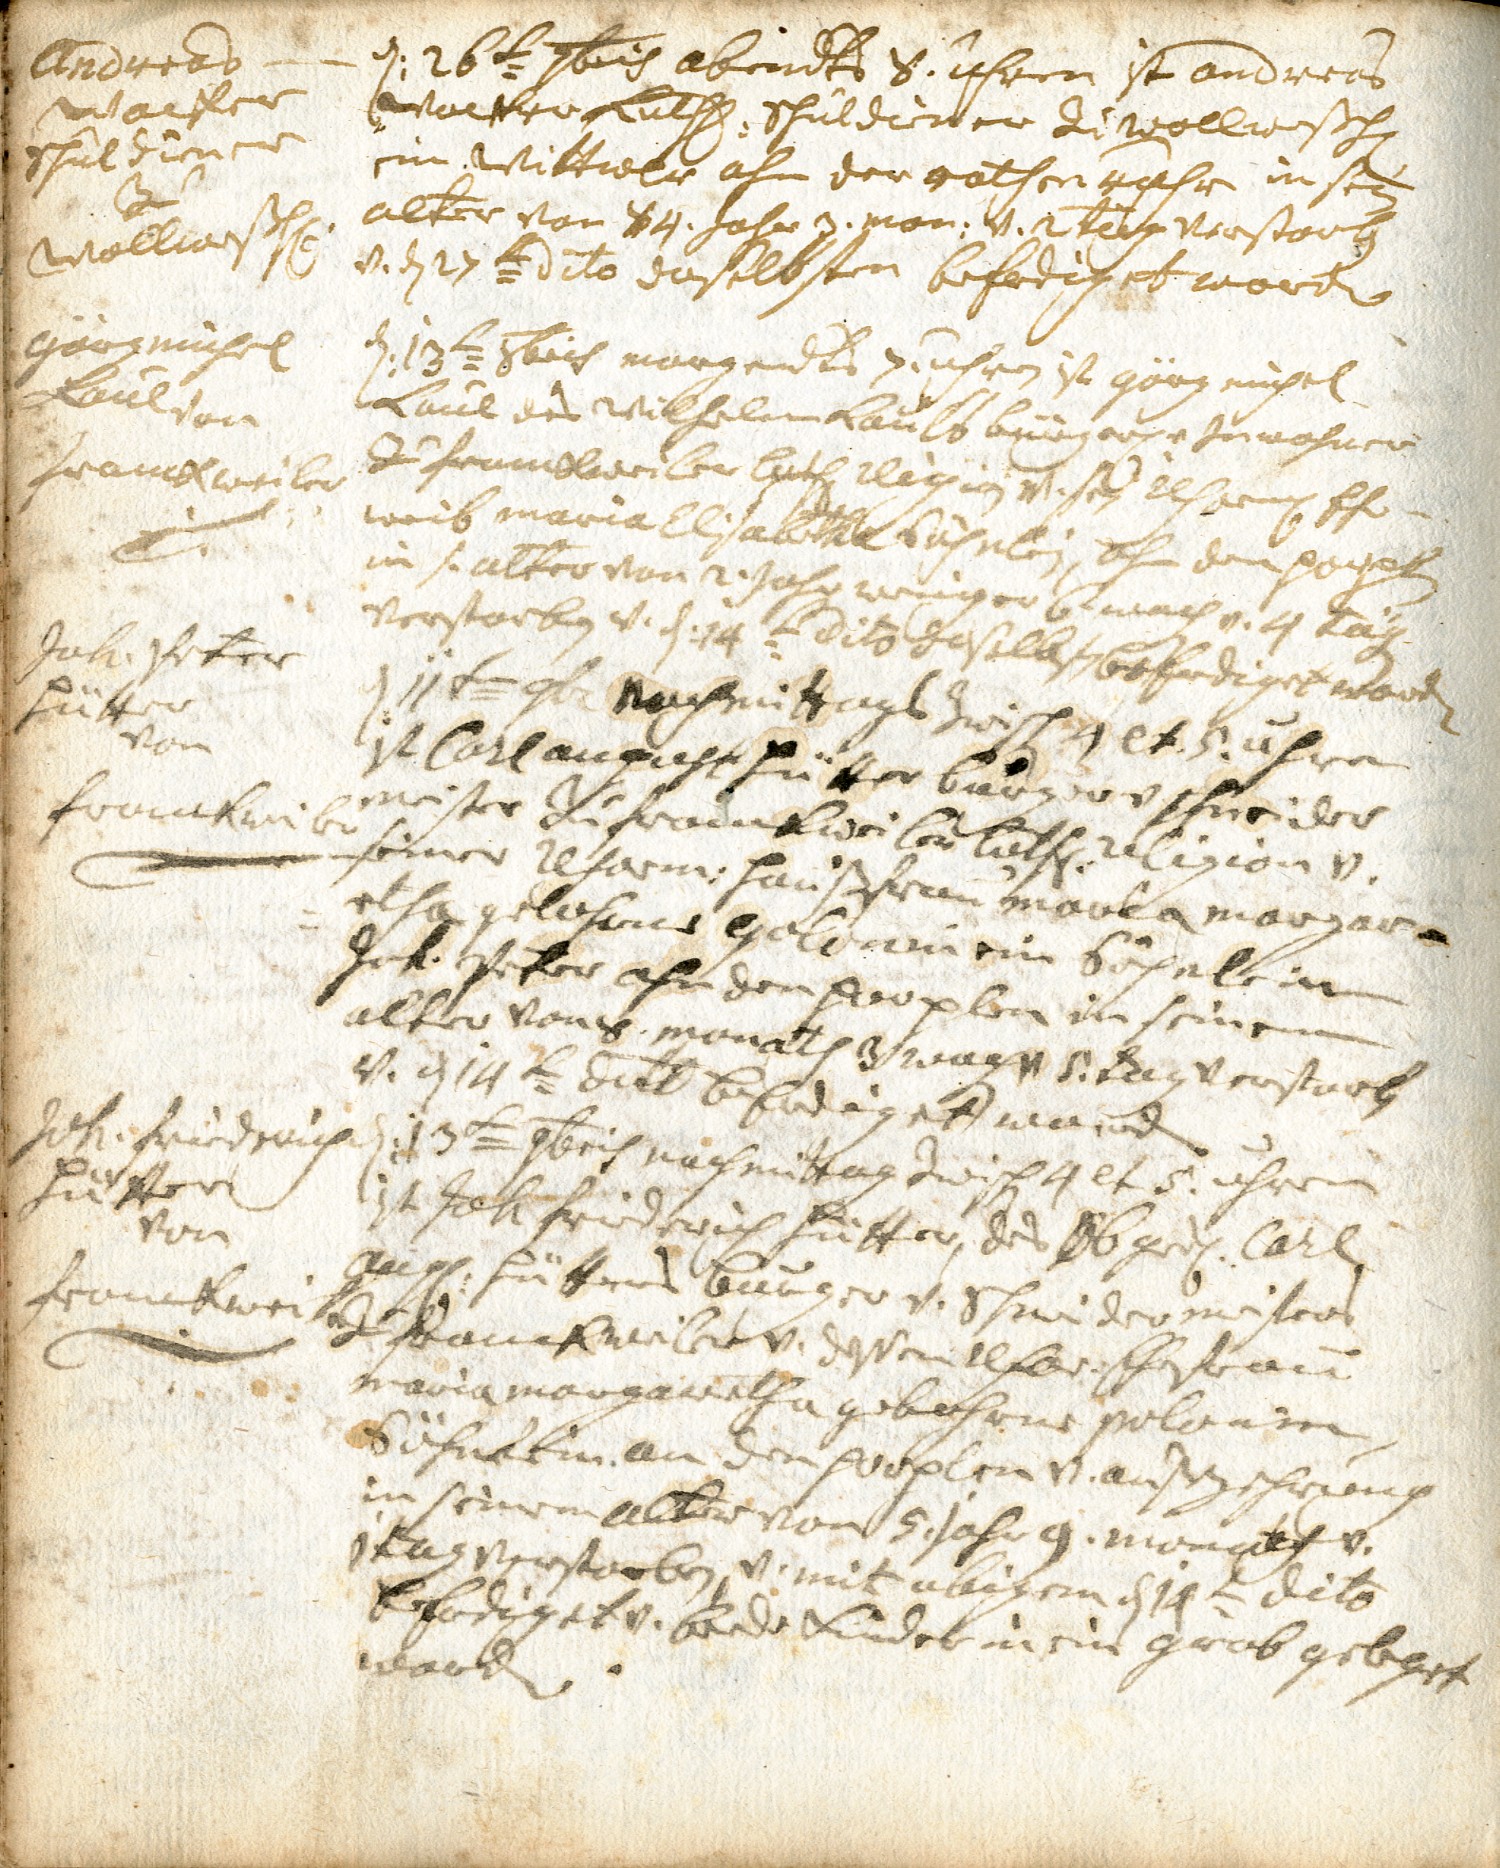 Andreas
Walther
Schuldiener
zu
Wollmeßh:
d: 26t 7bris abendts 8. uhren ist andreas
Walther Luth: Schuldiener zu Wollmeßh
ein Wittwer ahn der rothen ruhr in sey
alter von 84. Jahr 3. mon: v. 2 tag verstorb
v. d 27t dito daselbsten beerdiget word
Görgmichel
Laul von
Franckweiler
d: 13t 8bris morgends 7. uhren ist görgmichel
Laul des Wilhelm Lauls burgers Inwohner
zu Franckweiler luth religion v. sey Reform Ehe
weib maria Elisabetha Söhnlein, ahn den
in s. alter von 2. Jahr weniger v. 4 tag
verstorben v. d. 14t dito daselbst beerdiget word
Joh. Peter
Hütter
von
Franckweiler
d 11t 9br nachmittags zwisch 4 et. 5. uhren
ist Carl august Hütter burger v schneider
meister zu franckweiler luth: religion v.
seiner Reform: Haußfrau maria margar-
etha gebohrne Polonin ein Söhnlein
Joh. Peter ahn den in seinem
alter von 8. monath 3 woch v 5. tag verstorb
v. d 14t dito beerdiget word
Joh. Friedrich
Hütter
von
Franckweiler
d: 13t 9bris nachmittag zwisch 4 et 5. uhren
ist Joh Friederich Hütter, des obged. Carl
aug: Hütters burger v. Schneidermeisters
zu Franckweiler v. dessen Refor. Ehefrau
maria margaretha gebohrne polonin
Söhnlein. an den v. außzehrung
in seinem alter von 5. jahr 9. monath v.
1 tag verstorben, v. mit obigem d 14t dito
beerdiget v. beede Kinder in ein grab geleget
word